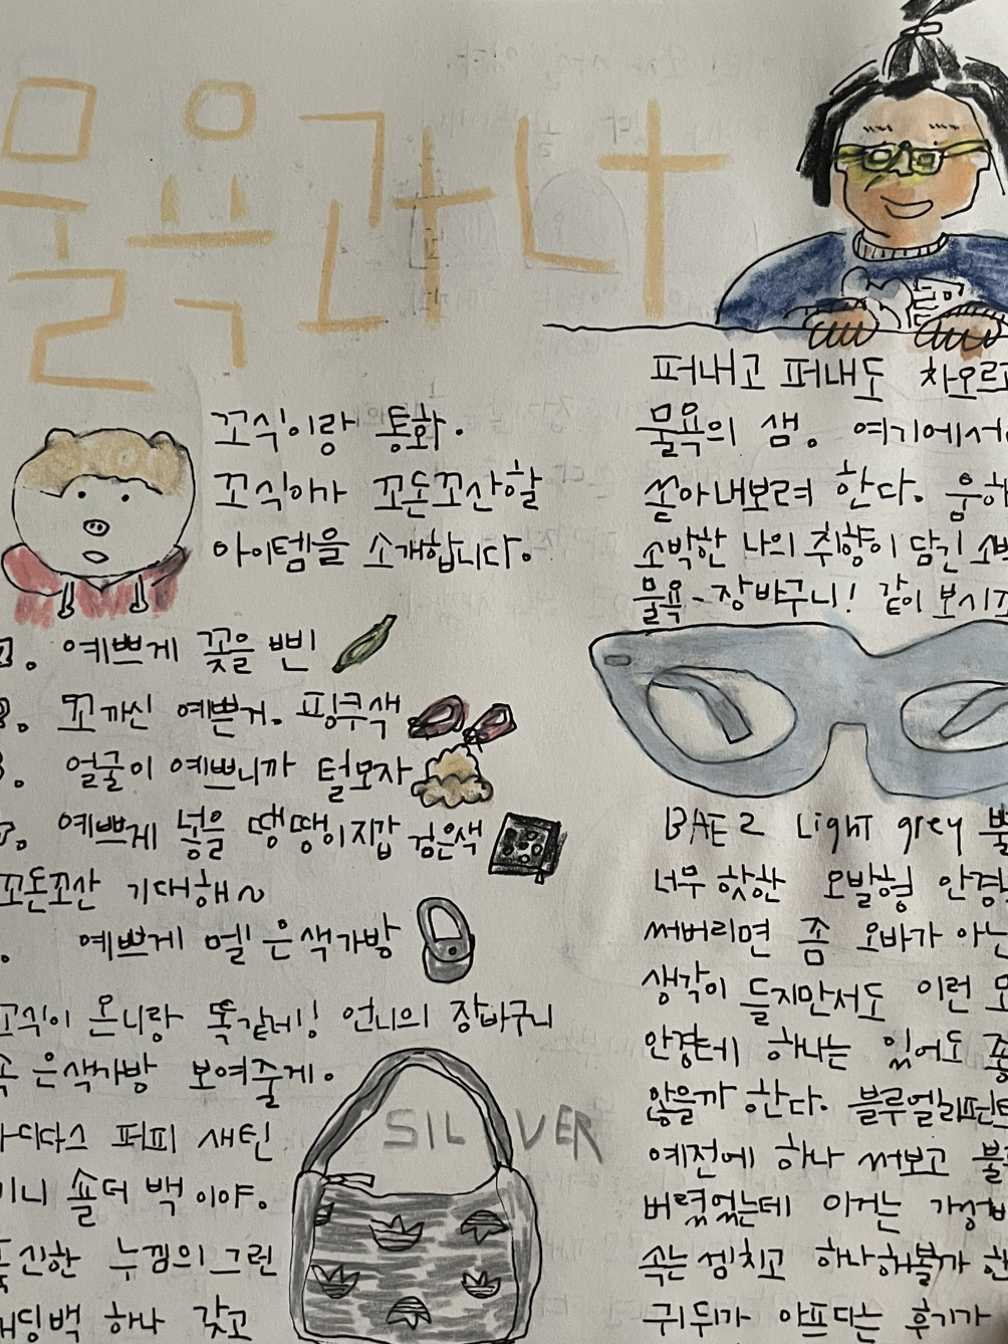 물욕과나
꼬식이랑 통화.
꼬식이가 꼬돈꼬산할
아이템을 소개합니다.
예쁘게 꽂을 삔
꼬까신 예쁜거. 핑쿠색
얼굴이 예쁘니까 털모자
예쁘게 넣을 땡땡이지갑 검은색
꼬돈꼬산 기대해~
예쁘게 멜 은색가방
꼬식이 온니랑 똑같네!! 언니의 장바구니
속 은색가방 보여줄게.
아디다스 퍼피 새틴
미니 숄더 백 이야.
푹신한 누낌의 그런
패딩백 하나 갖고
SILVER
퍼내고 퍼내도 차오르
물욕의 샘. 여기에서
쏟아내보려 한다. 움하
소박한 나의 취향이 담긴 소박
물욕-장바구니! 같이 보시
BAE2 Light grey
너무 핫한 오발형 안경
써버리면 좀 오바가 아닌
생각이 들지만서도 이런
안경테 하나는 있어도 좋
않을까 한다. 블루엘리펀트
예전에 하나 써보고
버렸었는데 이거는 가성비
속는 셈치고 하나 해볼까 한
귀 뒤가 아프다는 후기가